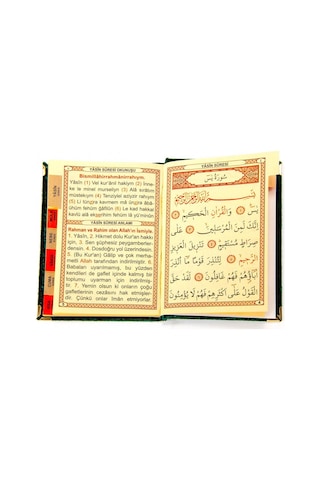 YÂSİN SÛRESİ OKUNUŞU
Bismillâhirrahmânirrahîym.
Yâsîn (1) Vel kur'ânil hakiym (2) İnne-
ke le minel murseliyn (3) Alâ sırâtım
mustekiym (4) Tenziylel aziyzir rahıym
(5) Li tünzira kavmem mâ ünzira
âbâühüm fehüm ğâfilûn (6) Le kad hakkal
kavlü alâ ekserihim fehüm lâ yü'minûn
YÂSİN SÛRESİ ANLAMI
Rahman ve Rahim olan Allah'ın İsmiyle.
1. Yâsîn, 2. Hikmet dolu Kur'an hakkı
için, 3. Sen şüphesiz peygamberler-
densin. 4. Dosdoğru yol üzerindesin.
5. (Bu Kur'an) Gâlip ve çok merha-
metli Allah tarafından indirilmiştir. 6.
Babaları uyarılmamış, bu yüzden
kendileri de gaflet içinde kalmış bir
toplumu uyarman için indirilmiş-
tir. 7. Yemin olsun ki onların çoğu
gafletlerinin cezasını hak etmişler-
dir. Çünkü onlar îman etmiyorlar.
YÂSİN SÛRESİ
سُورَةُ يٰسٓ
بِسْمِ اللّٰهِ الرَّحْمٰنِ الرَّحِيمِ
يٰسٓ وَالْقُرْاٰنِ الْحَكِيمِ
اِنَّكَ لَمِنَ الْمُرْسَلِينَ عَلٰى
صِرَاطٍ مُسْتَقِيمٍ تَنْزِيلَ الْعَزِيزِ
الرَّحِيمِ لِتُنْذِرَ قَوْمًا مَٓا اُنْذِرَ
اٰبَٓاؤُهُمْ فَهُمْ غَافِلُونَ لَقَدْ حَقَّ
الْقَوْلُ عَلٰٓى اَكْثَرِهِمْ فَهُمْ لَا يُؤْمِنُونَ